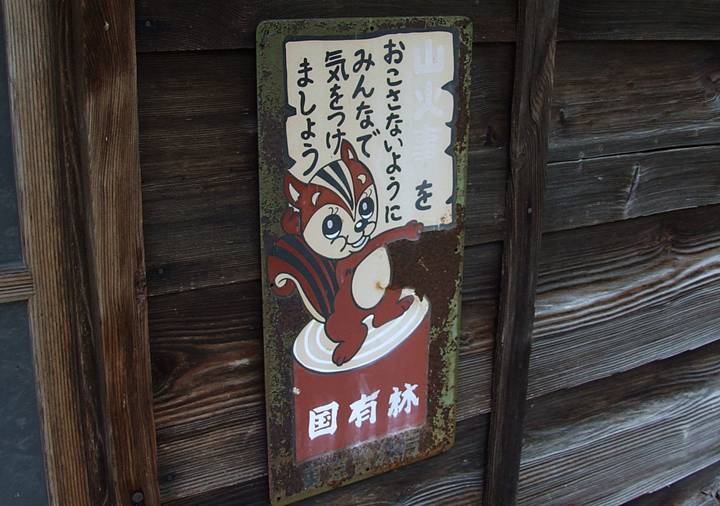 山火事を
おこさないように
みんなで
気をつけ
ましょう
国有林